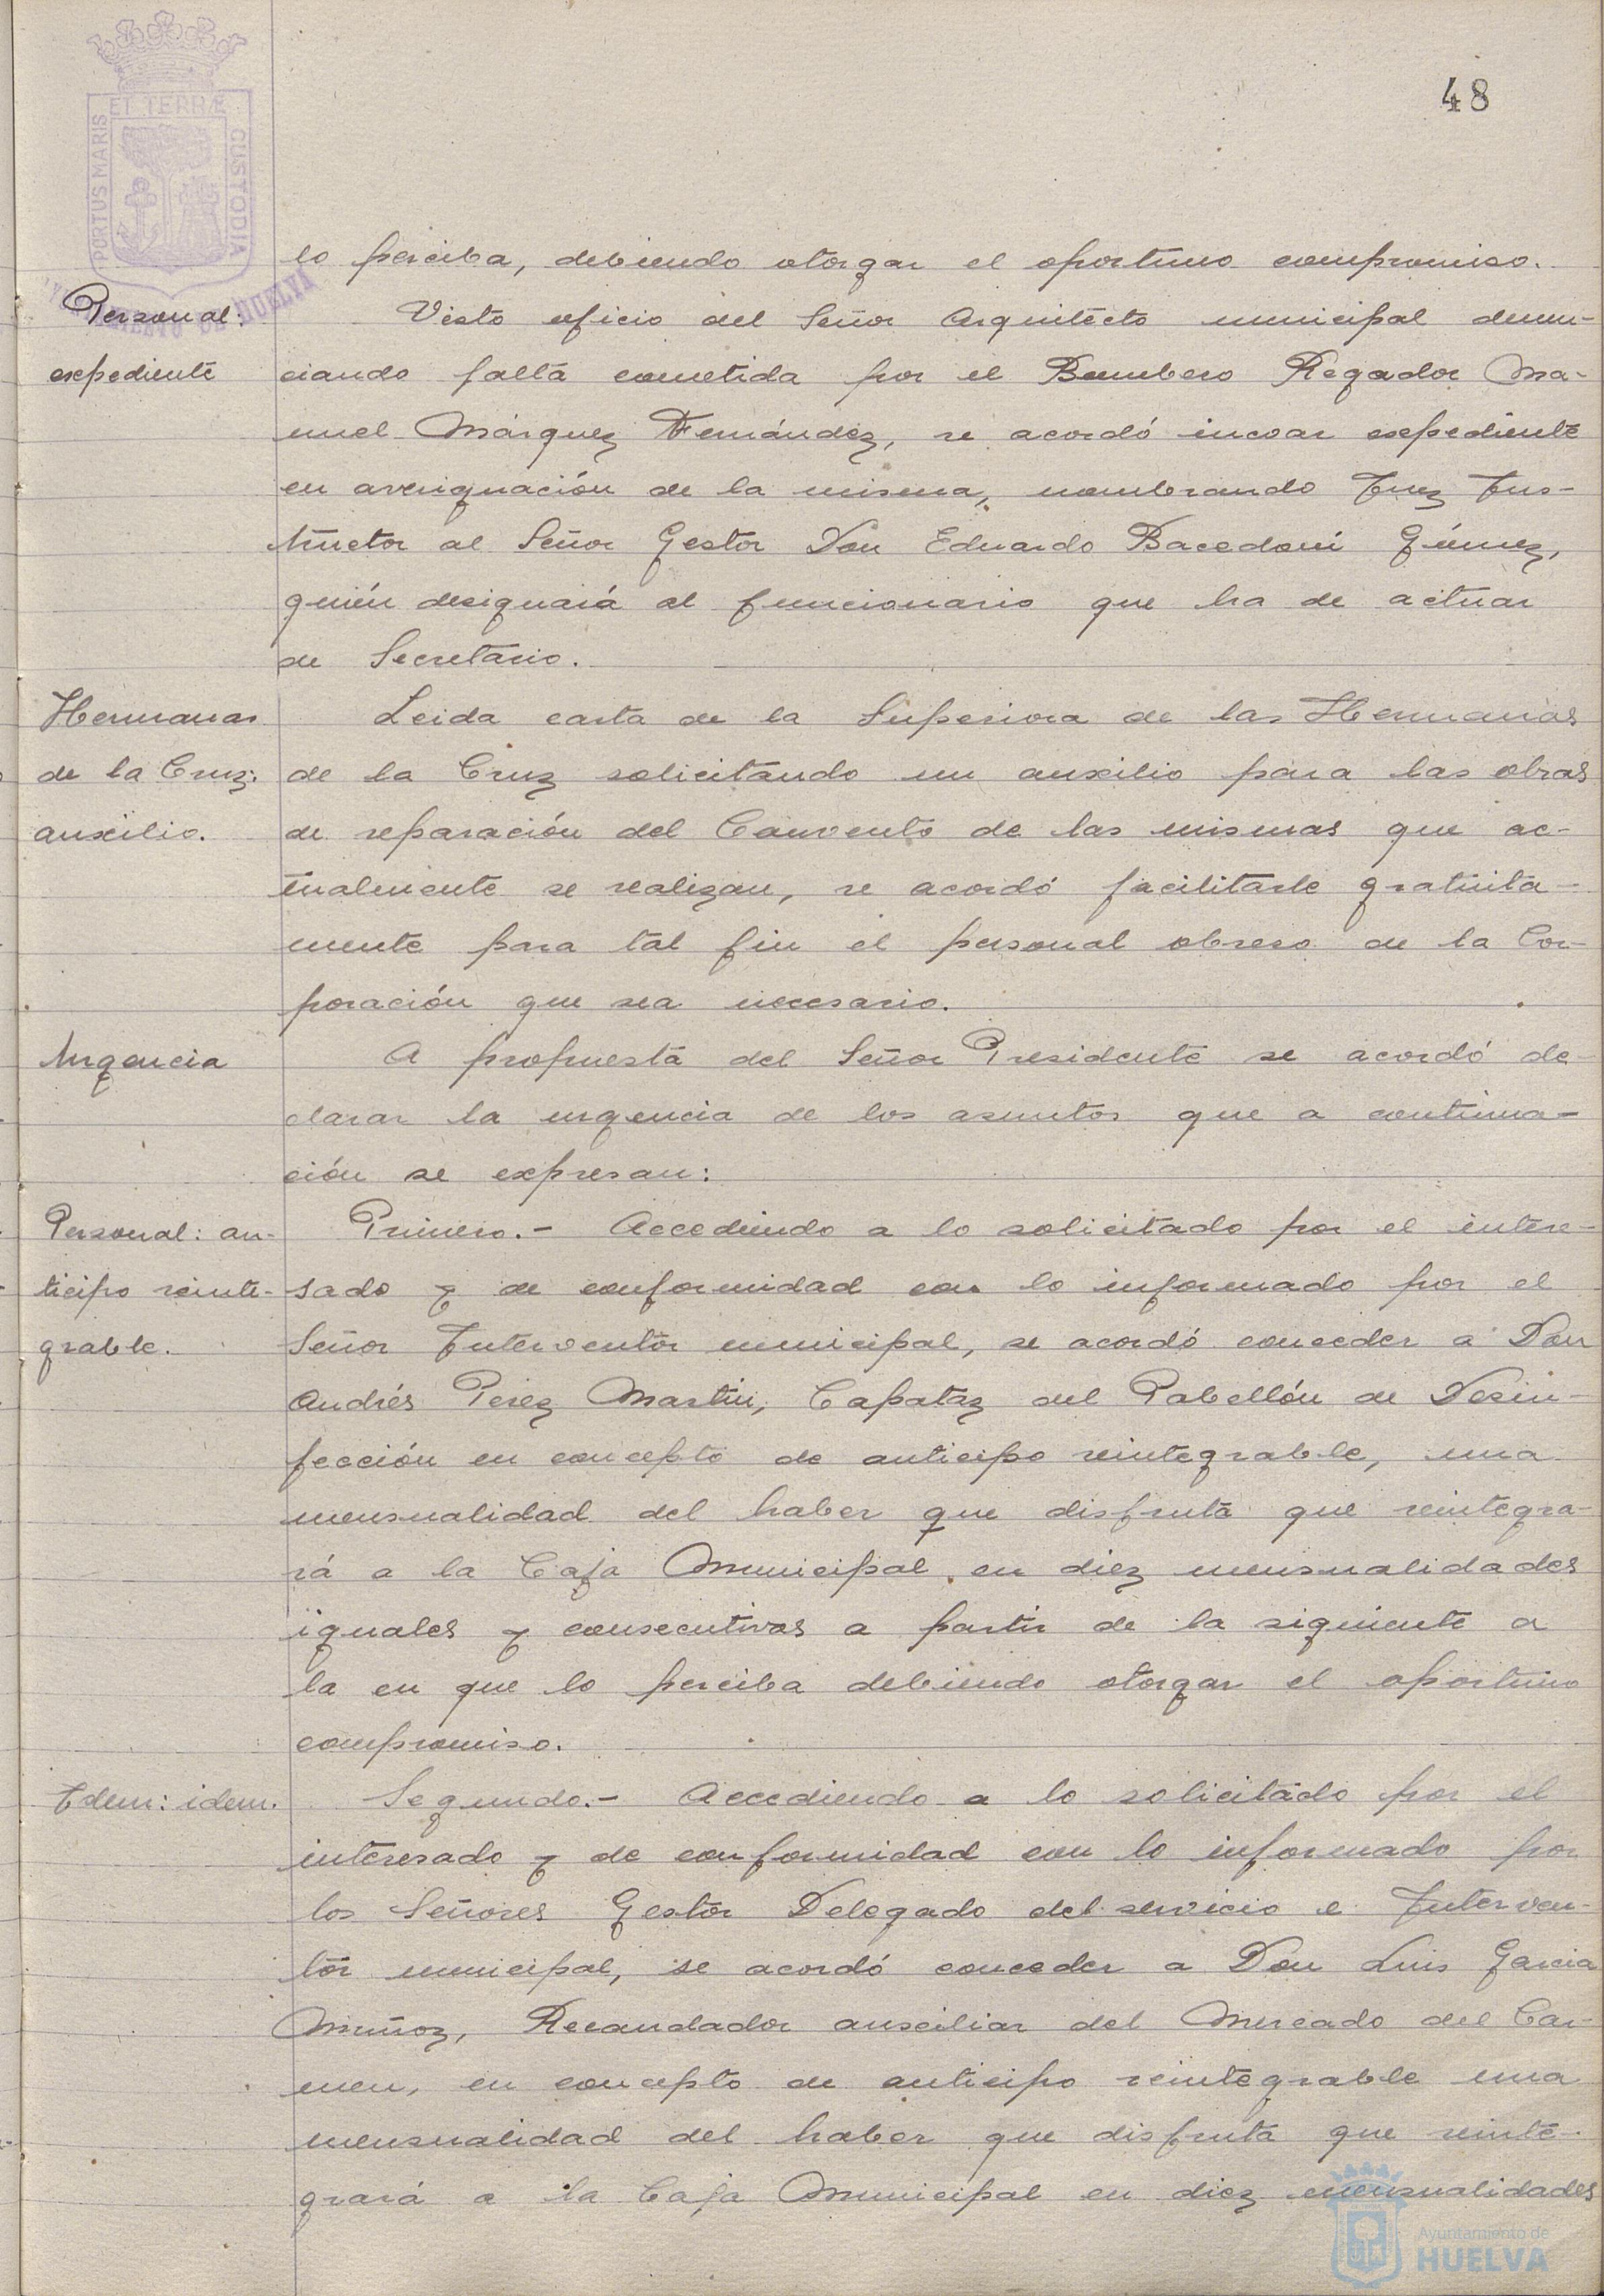 48
PORTUS MARIS ET TERRÆ CUSTODIA
AYUNTAMIENTO DE HUELVA
lo perciba, debiendo otorgar el oportuno compromiso.
Personal:
expediente
Visto oficio del Señor Arquitecto municipal denun-
ciando falta cometida por el Bombero Regador Ma-
nuel Márquez Fernández, se acordó incoar expediente
en averiguación de la misma, nombrando Juez Ins-
tructor al Señor Gestor Don Eduardo Bacedoni Gómez,
quién designará al funcionario que ha de actuar
de Secretario.
Hermanas
de la Cruz:
auxilio.
Leida carta de la Superiora de las Hermanas
de la Cruz solicitando un auxilio para las obras
de reparación del Convento de las mismas que ac-
tualmente se realizan, se acordó facilitarle gratuita-
mente para tal fin el personal obrero de la Cor-
poración que sea necesario.
Urgencia
A propuesta del Señor Presidente se acordó de-
clarar la urgencia de los asuntos que a continua-
ción se expresan:
Personal: an-
ticipo reinte-
grable.
Primero.- Accediendo a lo solicitado por el intere-
sado y de conformidad con lo informado por el
Señor Interventor municipal, se acordó conceder a Don
Andrés Perez Martin, Capataz del Pabellón de Desin-
fección en concepto de anticipo reintegrable, una
mensualidad del haber que disfruta que reintegra-
rá a la Caja Municipal en diez mensualidades
iguales y consecutivas a partir de la siguiente a
la en que lo perciba debiendo otorgar el oportuno
compromiso.
Idem: idem.
Segundo.- Accediendo a lo solicitado por el
interesado y de conformidad con lo informado por
los Señores Gestor Delegado del servicio e Interven-
tor municipal, se acordó conceder a Don Luis Garcia
Muñoz, Recaudador auxiliar del Mercado del Car-
men, en concepto de anticipo reintegrable una
mensualidad del haber que disfruta que reinte-
grará a la Caja Municipal en diez mensualidades
Ayuntamiento de
HUELVA